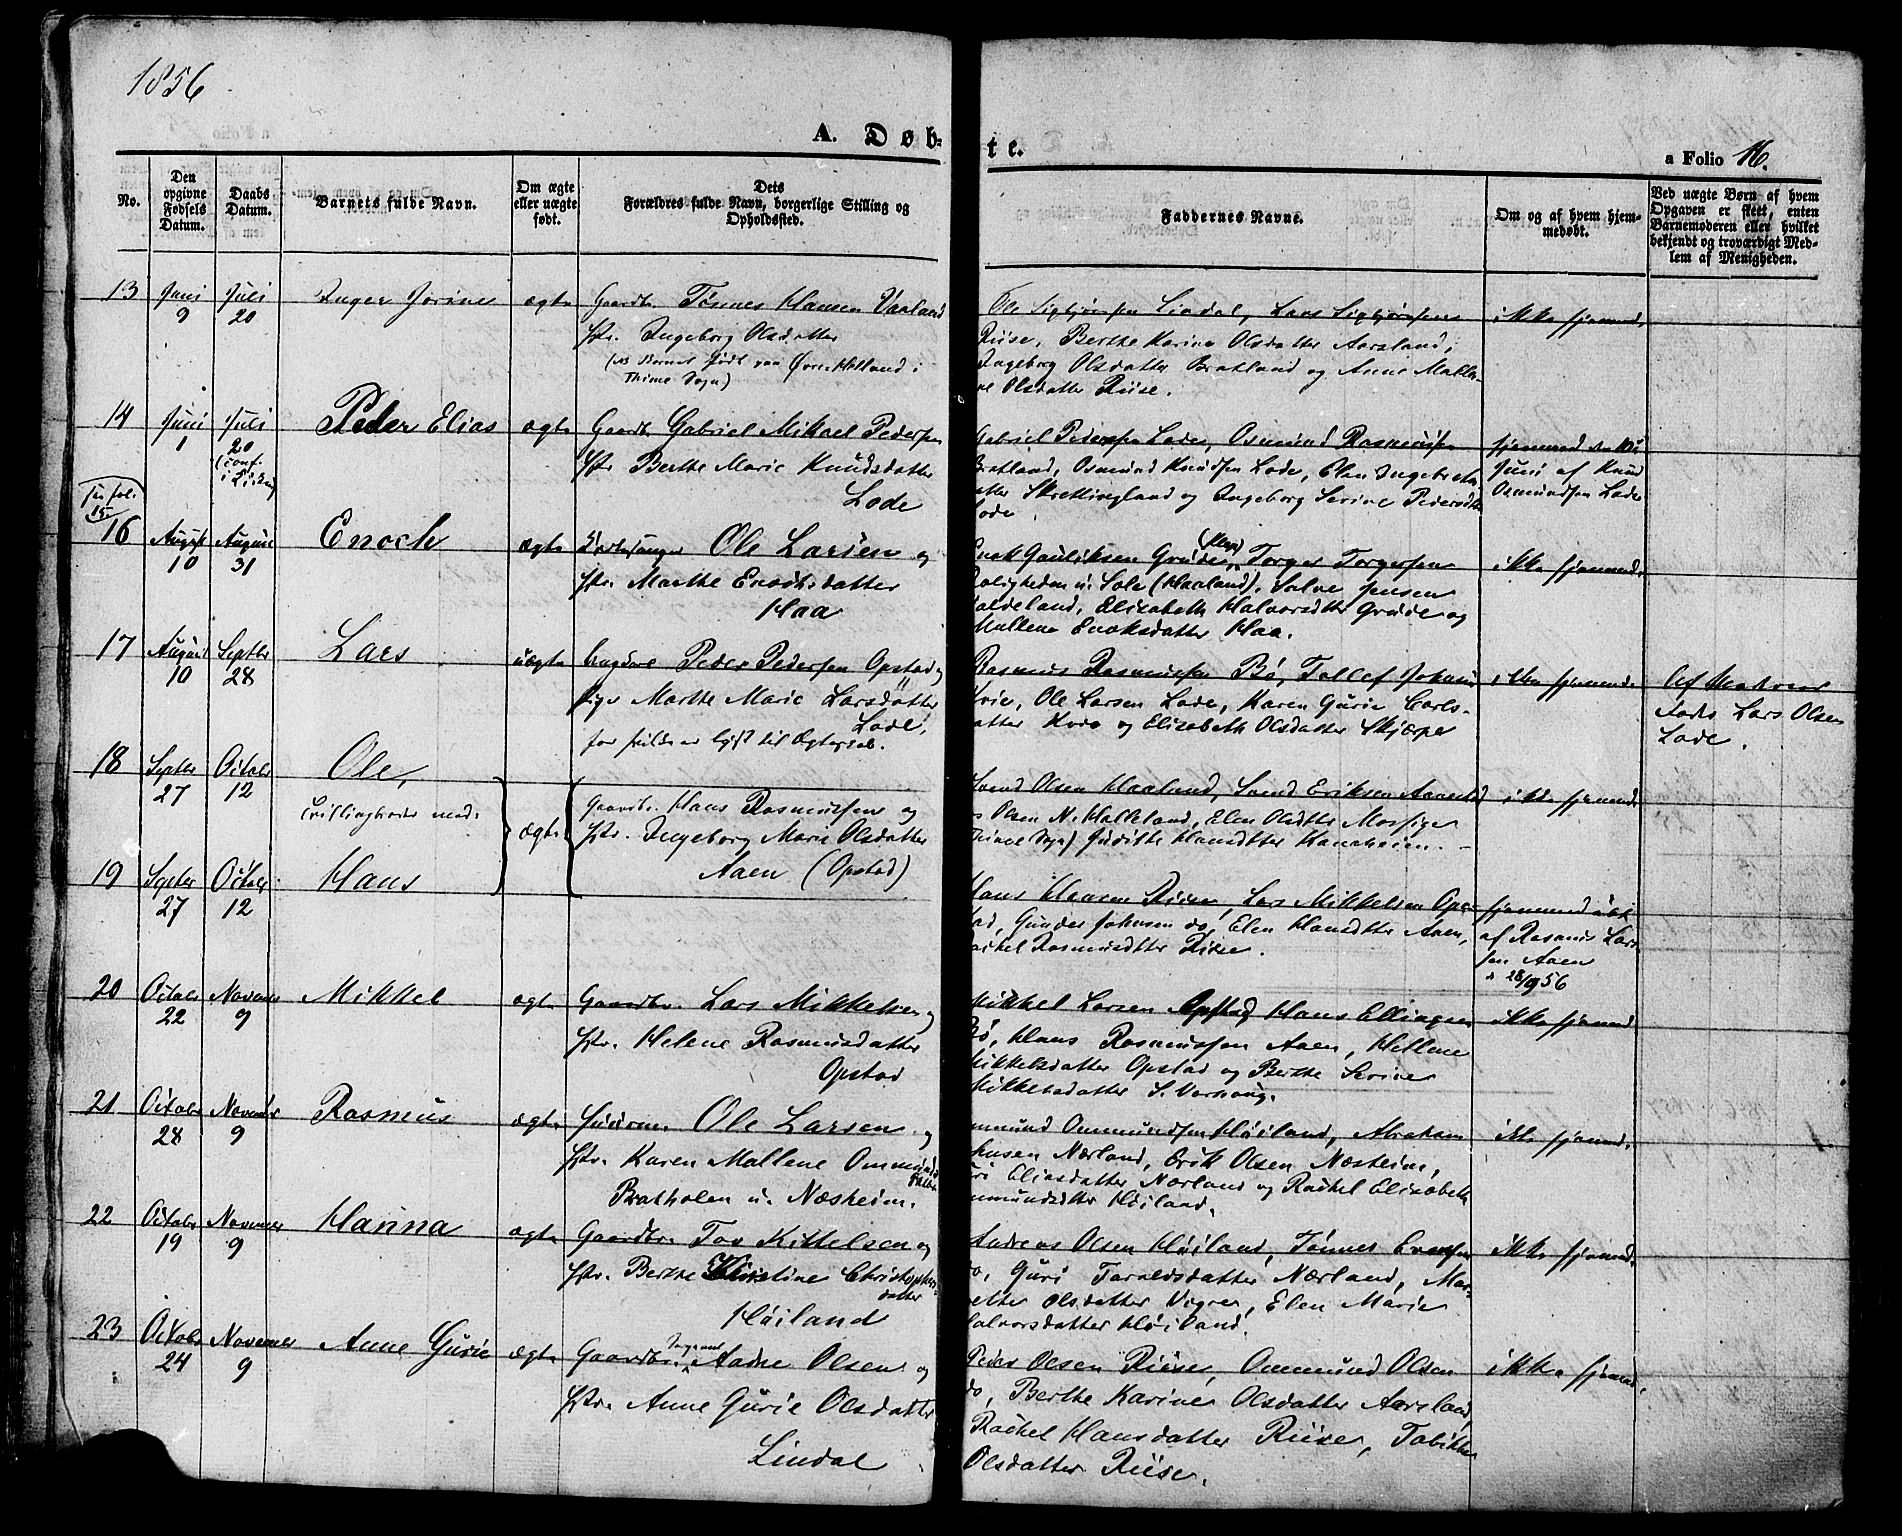 1856
A. Døb-
te.
a Folio 16.
No.
Den
opgivne
Fødsels
Datum.
Daabs
Datum.
Barnets fulde Navn.
Om ægte
eller uægte
født.
Dets
Forældres fulde Navn, borgerlige Stilling og
Opholdssted.
Faddernes Navne.
Om og af hvem hjem-
medøbt.
Ved uægte Børn af hvem
Opgaven er skeet, enten
Barnemoderen eller hvilket
bekjendt og troværdigt Med-
lem af Menigheden.
13 Juni 9 Juli 20 Inger Jorine ægte Gaardbr. Tønnes Hansen Vaaland
Hstr. Ingeborg Olsdatter
(NB Barnet født paa Øvre Hølland i
Thime Sogn)
Ole Sigbjørnsen Lindal, Lars Sigbjørnsen
Riise, Berthe Karine Olsdatter Aarsland,
Ingeborg Olsdatter Bratland og Anne Malle-
ne Olsdatter Riise.
ikke hjemmed.
14 Juni 1 Juli 20 Peder Elias ægte Gaardbr. Gabriel Mikael Pedersen
(conf.
Hstr. Berthe Marie Knudsdatter
Lode
Gabriel Pedersen Lode, Osmund Rasmusen
Bratland, Osmund Knudsen Lode, Elen Ingebrets-
datter Skretlingland og Ingeborg Serine Pedersdtr
Lode
hjemmed den
Juni af Knud
Osmundsen Lode
15
16 August 10 August 31 Enoch ægte Kirkesanger Ole Larsen og
Hstr. Marthe Enochsdatter
Haa
Gauliksen Grude (Klep), Torger Torgersen
Roligheden u. Sole (Haaland), Salve Jensen
Elisabeth Halvorsdtter Grude og
Mallene Enoksdatter Haa.
ikke hjemmed.
17 August 10 Septbr 28 Lars uægte Ungkarl Peder Pedersen Opstad og
Pige Marthe Marie Larsdatter
Lode,
for hvilke er lyst til Ægteskab.
Rasmus Rasmussen Bø, Tollef Johan
Ole Larsen Lode, Karen Gurie Carls-
datter Hvoo og Elisabeth Olsdatter Skjærpe
ikke hjemmed.
Af
Fader Lars Olsen
Lode.
18 Septbr 27 Octobr 12 Ole,
Tvillingbroder med
ægte Gaardbr. Hans Rasmussen og
Hstr. Ingeborg Marie Olsdatter
Aaen (Opstad)
Svend Olsen Haaland, Svend Eriksen Aanestad
Olsen N. Hølleland, Elen Olsdtter Mossige
(Thime Sogn) Juditthe Hansdtter Kanaheien.
ikke hjemmed.
19 Septbr 27 Octobr 12 Hans
Hans Hansen Riise, Lars Mikkelsen Op-
stad, Gunder Johnsen do, Elen Hansdtter Aaen,
Rachel Rasmusdtter Riise.
hjemmedøbt
af Rasmus Lar-
sen Aaen
d 28/9 56
20 Octobr 22 November 9 Mikkel ægte Gaardbr. Lars Mikkelsen og
Hstr. Helene Rasmusdatter
Opstad
Mikkel Larsen Opstad, Hans Ellingsen
Bø, Hans Rasmussen Aaen, Hellene
Mikkelsdatter Opstad og Berthe Serine
Mikkelsdatter S. Varhoug.
ikke hjemmed
21 Octobr 28 November 9 Rasmus ægte Huusm. Ole Larsen og
Hstr. Karen Mallene Ommunds
datter
Bratholen u. Næsheim.
Ommund Ommundsen Høiland, Abraham
Nærland, Erik Olsen Næsheim,
Guri Eliasdatter Nærland og Rachel Elisabeth
Ommundsdtter Høiland.
ikke hjemmed.
22 Octobr 19 November 9 Hanna ægte Gaardbr. Tov Kittelsen og
Hstr. Berthe Kirstine Christophers-
datter
Høiland
Andreas Olsen Høiland, Tønnes
do, Guri Taraldsdatter Nærland, Mar-
rethe Olsdatter Vigre, Elen Marie
Halvorsdatter Høiland.
ikke hjemmed.
23 Octobr 24 November 9 Anne Gurie ægte Gaardbr. Aadne Olsen og
Hstr. Anne Gurie Olsdatter
Lindal
Peder Olsen Riise, Ommund Olsen
do, Berthe Karine Olsdatter Aarsland,
Rachel Hansdatter Riise, Tabithe
Olsdatter Riise.
ikke hjemmed.